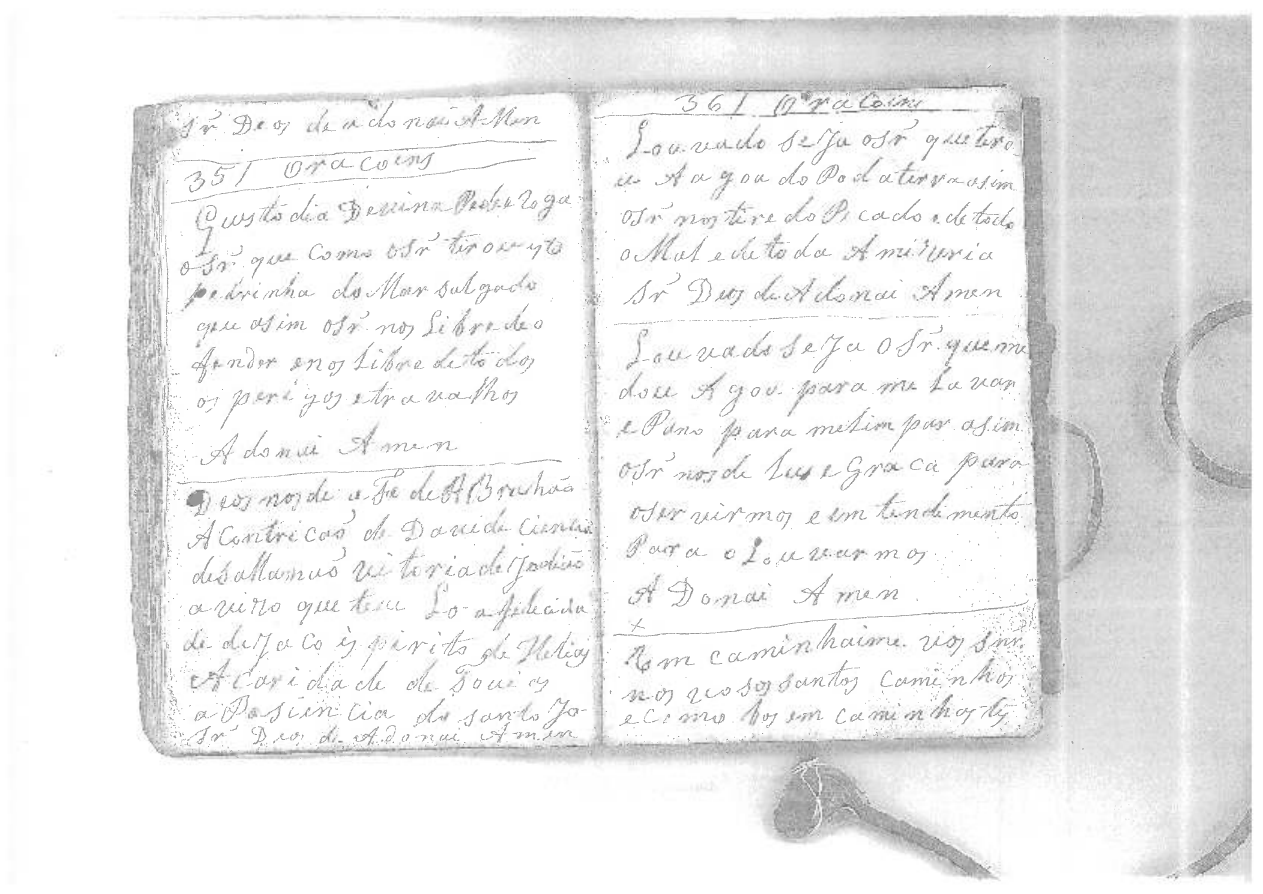 Sr Deos de adonai AMen
351 Oracoins
Gustodia Devina Pedra Roga
o Sr que como o Sr tirou
pedrinha do Mar salgado
que asim o Sr nos Libre de o
fender e nos Libre de todos
os perigos e travalhos
Adonai Amen
Deos nos de a Fe de ABrahão
A Contricaõ de Davide ciencia
de vitoria de
a que teve Lo a felicida
de de Jaco espirito de Helias
A caridade de
a Pasiencia do santo Jo
Sr Deos de Adonai Amen
361 Oracoins
Louvado seJa o Sr que tiro
u A agoa do Po da terra asim
o Sr nos tire do Pecado e de todo
o Mal e de toda A mizeria
Sr Deos de Adonai Amen
Louvado seJa o Sr que me
dou Agoa para me Lavar
e Pano para me limpar asim
o Sr nos de Lus e Graca para
o servirmos e em tendimento
Para o Louvarmos
A Donai Amen
x
Em caminhaime vos Snr
nos vosos santos caminhos
e como Vos em caminhastes